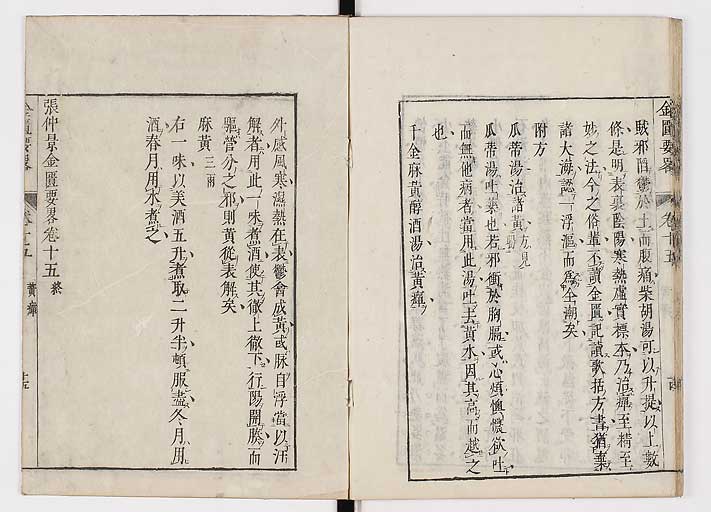 金匱要畧 卷十五
賊邪酒鬱於土而腹痛柴胡湯可以升提以上數
條是明表裏陰陽寒熱虛實標本乃治癉至精至
妙之法今之俗輩不讀金匱記讀歌括方書猶棄
諸大海認一浮漚而爲全潮矣
附方
瓜蒂湯治諸黃 方見
瓜蒂湯吐藥也若邪衝於胸膈或心煩懊憹欲吐
而無他病者當用此湯吐去黃水因其高而越之
也
千金麻黃醇酒湯治黃疸
外感風寒濕熱在表鬱會成黃或脉自浮當以汗
解者用此一味煮酒使其徹上徹下行陽開腠而
驅管分之邪則黃從表解矣
麻黃三兩
右一味以美酒五升煮取二升半頓服盡冬月用
酒春月用水煮之
張仲景金匱要畧卷十五終
卷十五 黃疸 十五